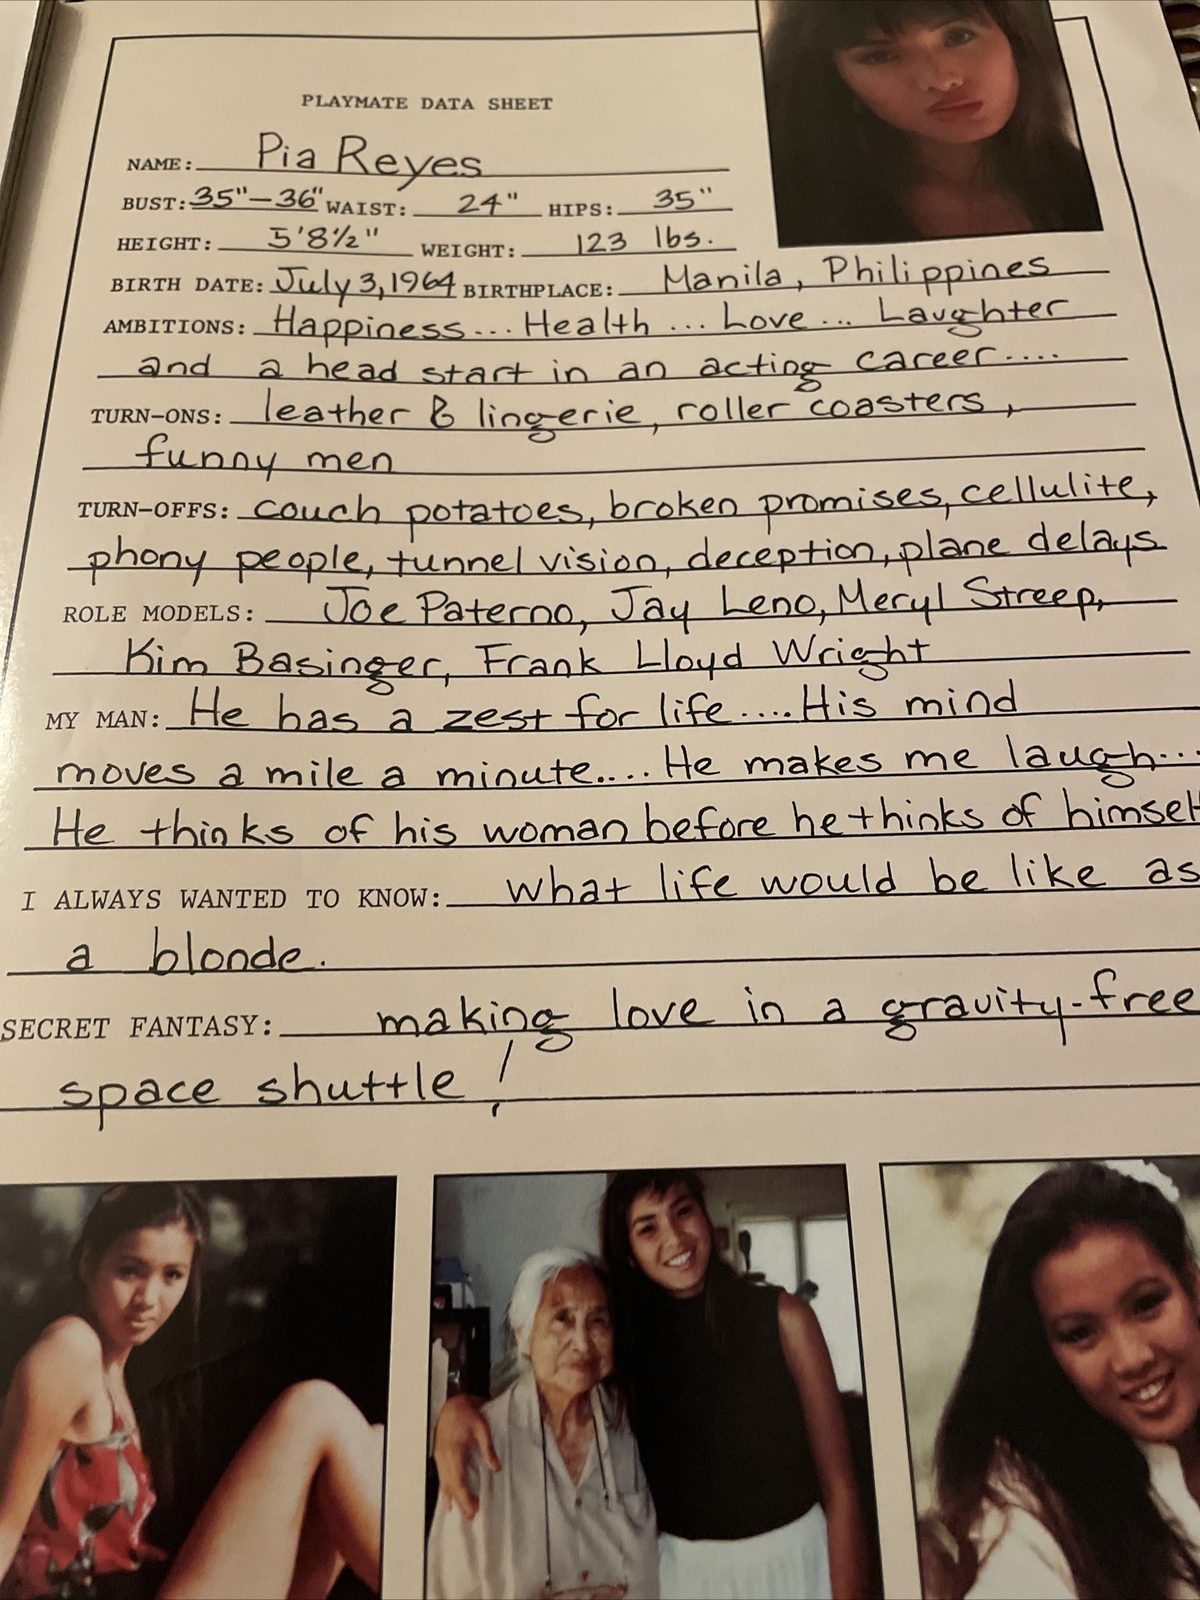 PLAYMATE DATA SHEET
NAME: Pia Reyes
BUST: 35"-36" WAIST: 24" HIPS: 35"
HEIGHT: 5'8½" WEIGHT: 123 lbs.
BIRTH DATE: July 3, 1964 BIRTHPLACE: Manila, Philippines
AMBITIONS: Happiness... Health... Love... Laughter
and a head start in an acting career....
TURN-ONS: leather & lingerie, roller coasters,
funny men
TURN-OFFS: couch potatoes, broken promises, cellulite,
phony people, tunnel vision, deception, plane delays
ROLE MODELS: Joe Paterno, Jay Leno, Meryl Streep,
Kim Basinger, Frank Lloyd Wright
MY MAN: He has a zest for life.... His mind
moves a mile a minute.... He makes me laugh...
He thinks of his woman before he thinks of himsel
I ALWAYS WANTED TO KNOW: what life would be like as
a blonde.
SECRET FANTASY: making love in a gravity-free
space shuttle!